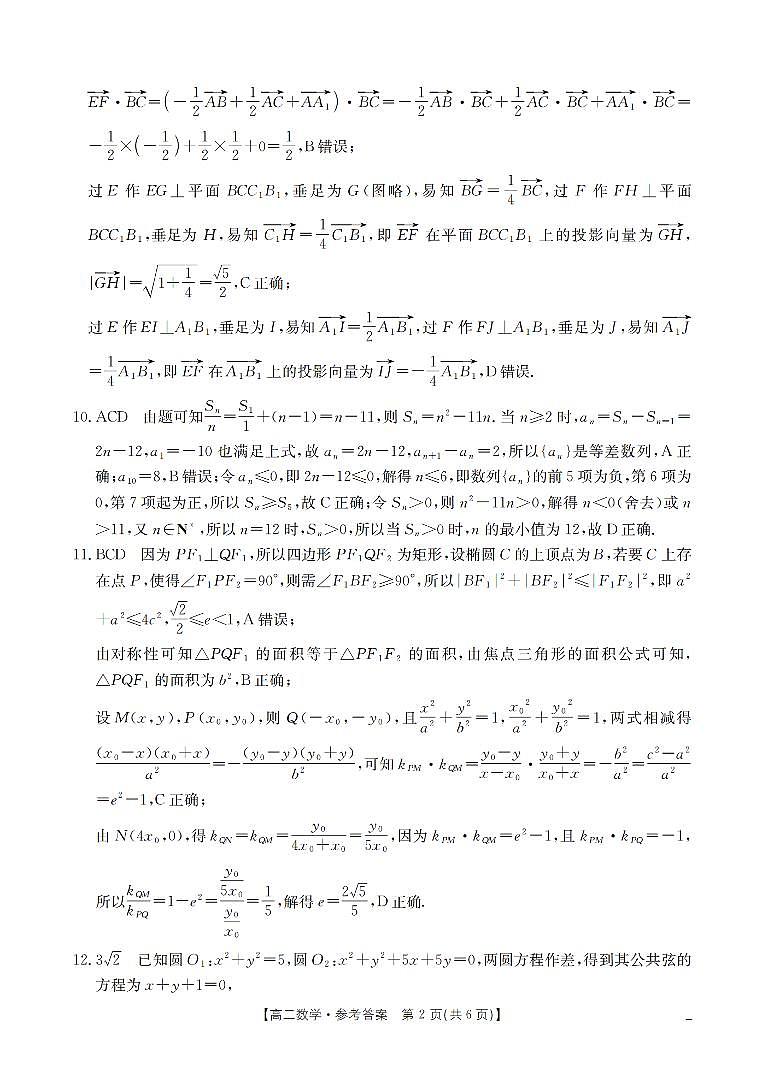 $\overrightarrow{EF}\cdot\overrightarrow{BC}=\left(-\frac{1}{2}\overrightarrow{AB}+\frac{1}{2}\overrightarrow{AC}+\overrightarrow{AA_1}\right)\cdot\overrightarrow{BC}=-\frac{1}{2}\overrightarrow{AB}\cdot\overrightarrow{BC}+\frac{1}{2}\overrightarrow{AC}\cdot\overrightarrow{BC}+\overrightarrow{AA_1}\cdot\overrightarrow{BC}=$
$-\frac{1}{2}\times\left(-\frac{1}{2}\right)+\frac{1}{2}\times\frac{1}{2}+0=\frac{1}{2}$,B错误;
过 E 作 EG⊥平面 $BCC_1B_1$,垂足为 G(图略),易知 $\overrightarrow{BG}=\frac{1}{4}\overrightarrow{BC}$,过 F 作 FH⊥平面
$BCC_1B_1$,垂足为 H,易知 $\overrightarrow{C_1H}=\frac{1}{4}\overrightarrow{C_1B_1}$,即 $\overrightarrow{EF}$ 在平面 $BCC_1B_1$ 上的投影向量为 $\overrightarrow{GH}$,
$|\overrightarrow{GH}|=\sqrt{1+\frac{1}{4}}=\frac{\sqrt{5}}{2}$,C正确;
过 E 作 $EI\perp A_1B_1$,垂足为 I,易知 $\overrightarrow{A_1I}=\frac{1}{2}\overrightarrow{A_1B_1}$,过 F 作 $FJ\perp A_1B_1$,垂足为 J,易知 $\overrightarrow{A_1J}$
$=\frac{1}{4}\overrightarrow{A_1B_1}$,即 $\overrightarrow{EF}$ 在 $\overrightarrow{A_1B_1}$ 上的投影向量为 $\overrightarrow{IJ}=-\frac{1}{4}\overrightarrow{A_1B_1}$,D错误.
10. ACD 由题可知 $\frac{S_n}{n}=\frac{S_1}{1}+(n-1)=n-11$,则 $S_n=n^2-11n$. 当 $n\geq2$ 时,$a_n=S_n-S_{n-1}=$
$2n-12$,$a_1=-10$ 也满足上式,故 $a_n=2n-12$,$a_{n+1}-a_n=2$,所以$\{a_n\}$是等差数列,A正
确;$a_{10}=8$,B错误;令 $a_n\leq0$,即 $2n-12\leq0$,解得 $n\leq6$,即数列$\{a_n\}$的前5项为负,第6项为
0,第7项起为正,所以 $S_n\geq S_5$,故C正确;令 $S_n>0$,则 $n^2-11n>0$,解得 $n<0$(舍去)或 n
$>11$,又 $n\in\mathbf{N}^*$,所以 $n=12$ 时,$S_n>0$,所以当 $S_n>0$ 时,n 的最小值为12,故D正确.
11. BCD 因为 $PF_1\perp QF_1$,所以四边形 $PF_1QF_2$ 为矩形,设椭圆 C 的上顶点为 B,若要 C 上存
在点 P,使得$\angle F_1PF_2=90°$,则需$\angle F_1BF_2\geq90°$,所以$|BF_1|^2+|BF_2|^2\leq|F_1F_2|^2$,即 $a^2$
$+a^2\leq4c^2$,$\frac{\sqrt{2}}{2}\leq e<1$,A错误;
由对称性可知$\triangle PQF_1$ 的面积等于$\triangle PF_1F_2$ 的面积,由焦点三角形的面积公式可知,
$\triangle PQF_1$ 的面积为 $b^2$,B正确;
设 $M(x,y)$,$P(x_0,y_0)$,则 $Q(-x_0,-y_0)$,且$\frac{x^2}{a^2}+\frac{y^2}{b^2}=1$,$\frac{x_0^2}{a^2}+\frac{y_0^2}{b^2}=1$,两式相减得
$\frac{(x_0-x)(x_0+x)}{a^2}=-\frac{(y_0-y)(y_0+y)}{b^2}$,可知 $k_{PM}\cdot k_{QM}=\frac{y_0-y}{x-x_0}\cdot\frac{y_0+y}{x_0+x}=-\frac{b^2}{a^2}=\frac{c^2-a^2}{a^2}$
$=e^2-1$,C正确;
由 $N(4x_0,0)$,得 $k_{QN}=k_{QM}=\frac{y_0}{4x_0+x_0}=\frac{y_0}{5x_0}$,因为 $k_{PM}\cdot k_{QM}=e^2-1$,且 $k_{PM}\cdot k_{PQ}=-1$,
所以$\frac{k_{QM}}{k_{PQ}}=1-e^2=\frac{\frac{y_0}{5x_0}}{\frac{y_0}{x_0}}=\frac{1}{5}$,解得 $e=\frac{2\sqrt{5}}{5}$,D正确.
12. $3\sqrt{2}$ 已知圆 $O_1:x^2+y^2=5$,圆 $O_2:x^2+y^2+5x+5y=0$,两圆方程作差,得到其公共弦的
方程为 $x+y+1=0$,
【高二数学·参考答案 第2页(共6页)】